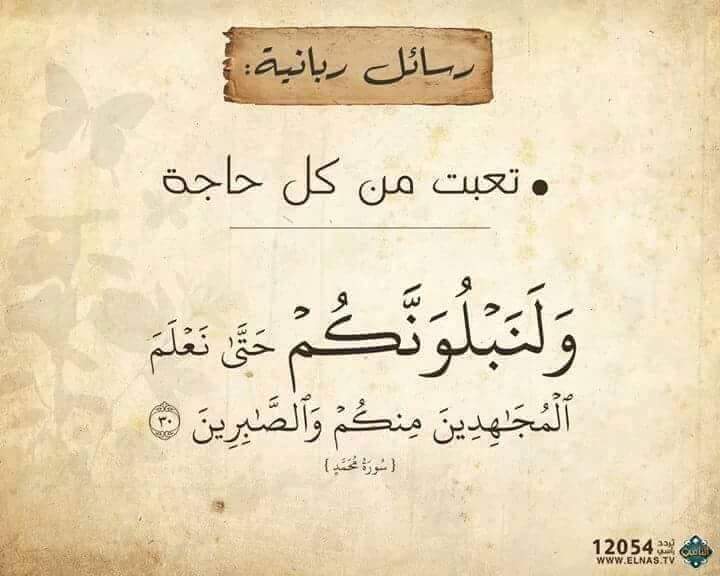 رسائل ربانية:
• تعبت من كل حاجة
وَلَنَبْلُوَنَّكُمْ حَتَّىٰ نَعْلَمَ
ٱلْمُجَـٰهِدِينَ مِنكُمْ وَٱلصَّـٰبِرِينَ ٣٠
{ سُورَةُ مُحَمَّدٍ }
12054 تردد رأسي
WWW.ELNAS.TV
الناس